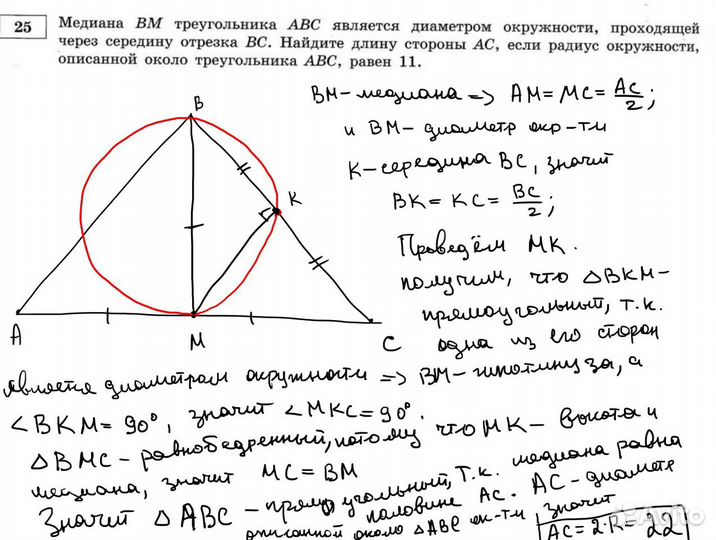 25
Медиана BM треугольника ABC является диаметром окружности, проходящей
через середину отрезка BC. Найдите длину стороны AC, если радиус окружности,
описанной около треугольника ABC, равен 11.
B
K
A
M
C
BM-медиана => AM=MC=AC/2;
и BM-диаметр окр-ти
K-середина BC, значит
BK=KC=BC/2;
Проведём MK.
получим, что △BKM-
прямоугольный, т.к.
одна из его сторон
является диаметром окружности => BM-гипотинуза, а
∠BKM=90°, значит ∠MKC=90°.
△BMC-равнобедренный, потому что MK-высота и
медиана, значит MC=BM
Значит △ABC-прямоугольный, т.к. медиана равна
половине AC. AC-диаметр
описанной около △ABC ок-ти значит
AC=2·R=22
Avito